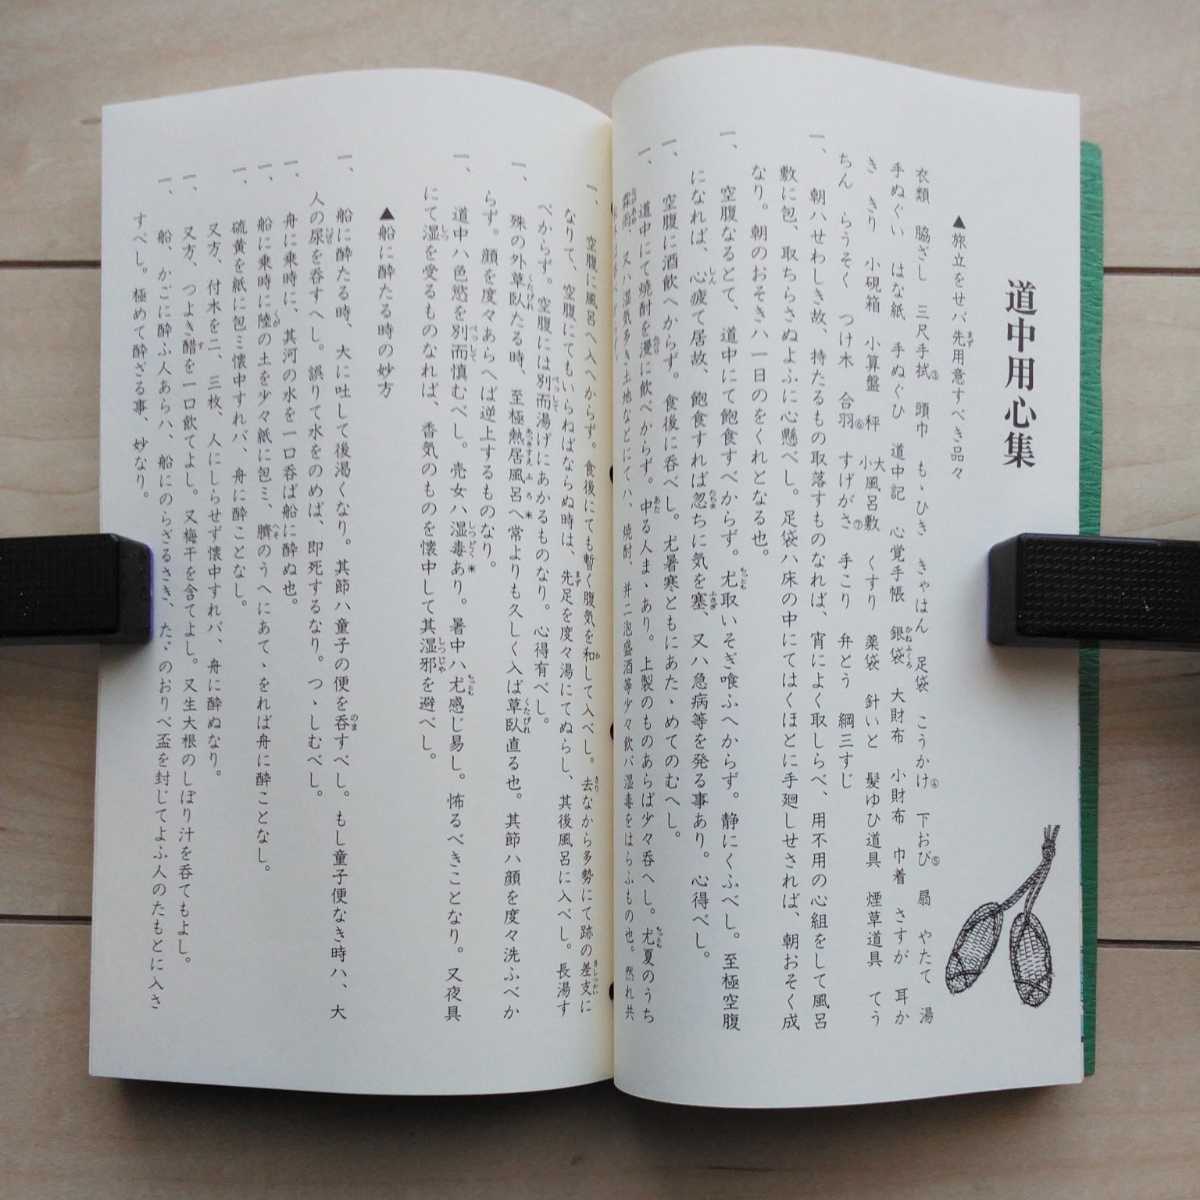 道中用心集
▲旅立をせバ先用意すべき品々
衣類　脇ざし　三尺手拭③　頭巾　もゝひき　きゃはん　足袋　こうかけ④　下おび⑤　扇　やたて　湯
手ぬぐい　はな紙　手ぬぐひ　道中記　心覚手帳　銀袋　大財布　小財布　巾着　さすが　耳か
き　きり　小硯箱　小算盤　秤　大小風呂敷　くすり　薬袋　針いと　髪ゆひ道具　煙草道具　てう
ちん　らうそく　つけ木　合羽⑥　すげがさ⑦　手こり　弁とう　綱三すじ
一、朝ハせわしき故、持たるもの取落すものなれば、宵によく取しらべ、用不用の心組をして風呂
敷に包、取ちらさぬよふに心懸べし。足袋ハ床の中にてはくほとに手廻しせされば、朝おそく成
なり。朝のおそきハ一日のをくれとなる也。
一、空腹なるとて、道中にて飽食すべからず。尤取いそぎ喰ふへからず。静にくふべし。至極空腹
になれば、心疲て居故、飽食すれば忽ちに気を塞、又ハ急病等を発る事あり。心得べし。
一、空腹に酒飲へからず。食後に呑べし。尤暑寒ともにあたゝめてのむへし。
一、道中にて焼酎を漫に飲べからず。中る人まゝあり。上製のものあらば少々呑へし。尤夏のうち
又ハ湿気多き土地などにてハ、焼酎、并ニ泡盛酒等少々飲バ湿毒をはらふもの也。然れ共
一、空腹に風呂へ入へからず。食後にても暫く腹気を和して入べし。去なから多勢にて跡の差支に
なりて、空腹にてもいらねばならぬ時は、先足を度々湯にてぬらし、其後風呂に入べし。長湯す
べからず。空腹には別而湯げにあかるものなり。心得有べし。
一、殊の外草臥たる時、至極熱居風呂へ常よりも久しく入ば草臥直る也。其節ハ顔を度々洗ふべか
らず。顔を度々あらへば逆上するものなり。
一、道中ハ色慾を別而慎むべし。売女ハ湿毒あり。暑中ハ尤感じ易し。怖るべきことなり。又夜具
にて湿を受るものなれば、香気のものを懐中して其湿邪を避べし。
▲船に酔たる時の妙方
一、船に酔たる時、大に吐して後渇くなり。其節ハ童子の便を呑すべし。もし童子便なき時ハ、大
人の尿を呑すへし。誤りて水をのめば、即死するなり。つゝしむべし。
一、舟に乗時に、其河の水を一口呑ば船に酔ぬ也。
一、船に乗時に陸の土を少々紙に包ミ、臍のうへにあてゝをれば舟に酔ことなし。
一、硫黄を紙に包ミ懐中すれバ、舟に酔ことなし。
又方、付木を二、三枚、人にしらせず懐中すれバ、舟に酔ぬなり。
一、又方、つよき醋を一口飲てよし。又梅干を含てよし。又生大根のしぼり汁を呑てもよし。
一、船、かごに酔ふ人あらハ、船にのらざるさき、たゞのおりべ盃を封じてよふ人のたもとに入さ
すべし。極めて酔ざる事、妙なり。